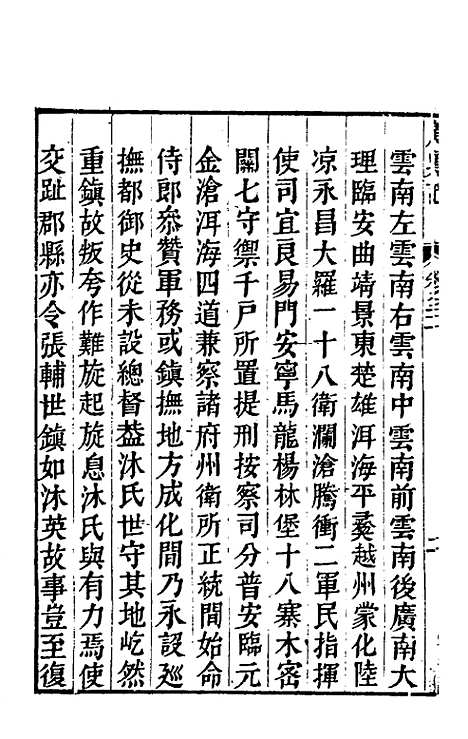 雲南左雲南右雲南中雲南前雲南後廣南大
理臨安曲靖景東楚雄洱海平夷越州蒙化陸
凉永昌大羅一十八衛瀾滄騰衝二軍民指揮
使司宜良易門安寧馬龍楊林堡十八寨木密
關七守禦千戶所置提刑按察司分普安臨元
金滄洱海四道兼察諸府州衛所正統間始命
侍郎叅贊軍務或鎭撫地方成化間乃永設廵
撫都御史從未設總督葢沐氏世守其地屹然
重鎭故叛夸作難旋起旋息沐氏與有力焉使
交趾郡縣亦令張輔世鎭如沐英故事豈至復